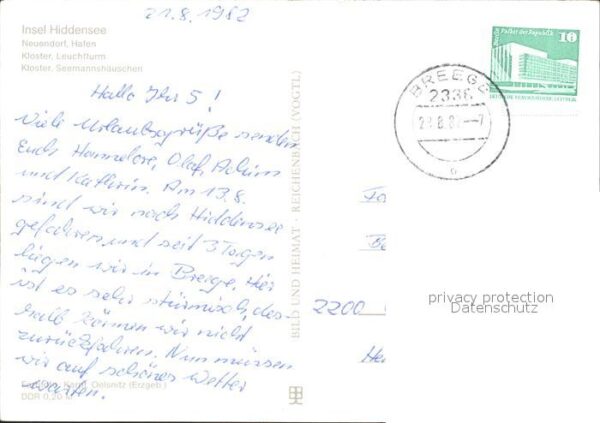 21.8.1982
Insel Hiddensee
Neuendorf, Hafen
Kloster, Leuchtturm
Kloster, Seemannshäuschen
Hallo Ihr 5!
Viele Urlaubsgrüße senden
Euch Hannelore, Olaf, Achim
und Kathrin. Am 13.8.
sind wir nach Hiddensee
gefahren und seit 3 Tagen
liegen wir in Breege. Hier
ist es sehr stürmisch, des-
halb können wir nicht
zurückfahren. Nun müssen
wir auf schönes Wetter
warten.
Oelsnitz (Erzgeb.)
DDR 0,20 M
BILD UND HEIMAT · REICHENBACH (VOGTL)
Berlin Palast der Republik
10
BREEGE
2336
-7
2200
privacy protection
Datenschutz